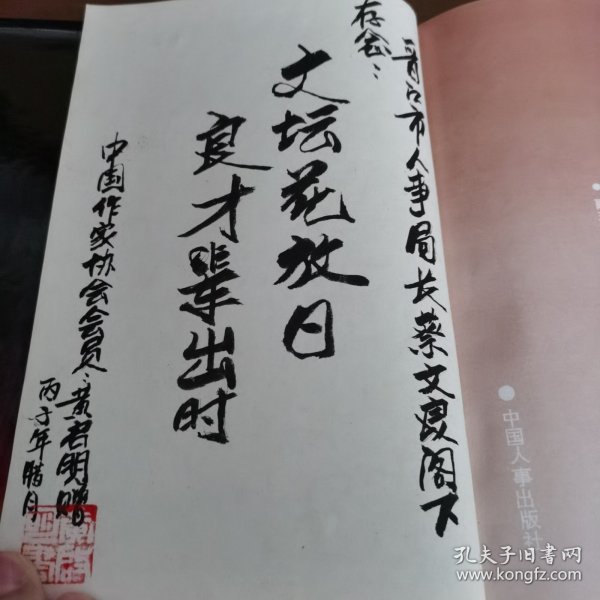 晋江市人事局长蔡文良阁下
存念：
文坛花放日
良才辈出时
中国作家协会会员：黄启明赠
丙子年腊月
中国人事出版社
孔夫子旧书网
www.kongfz.com